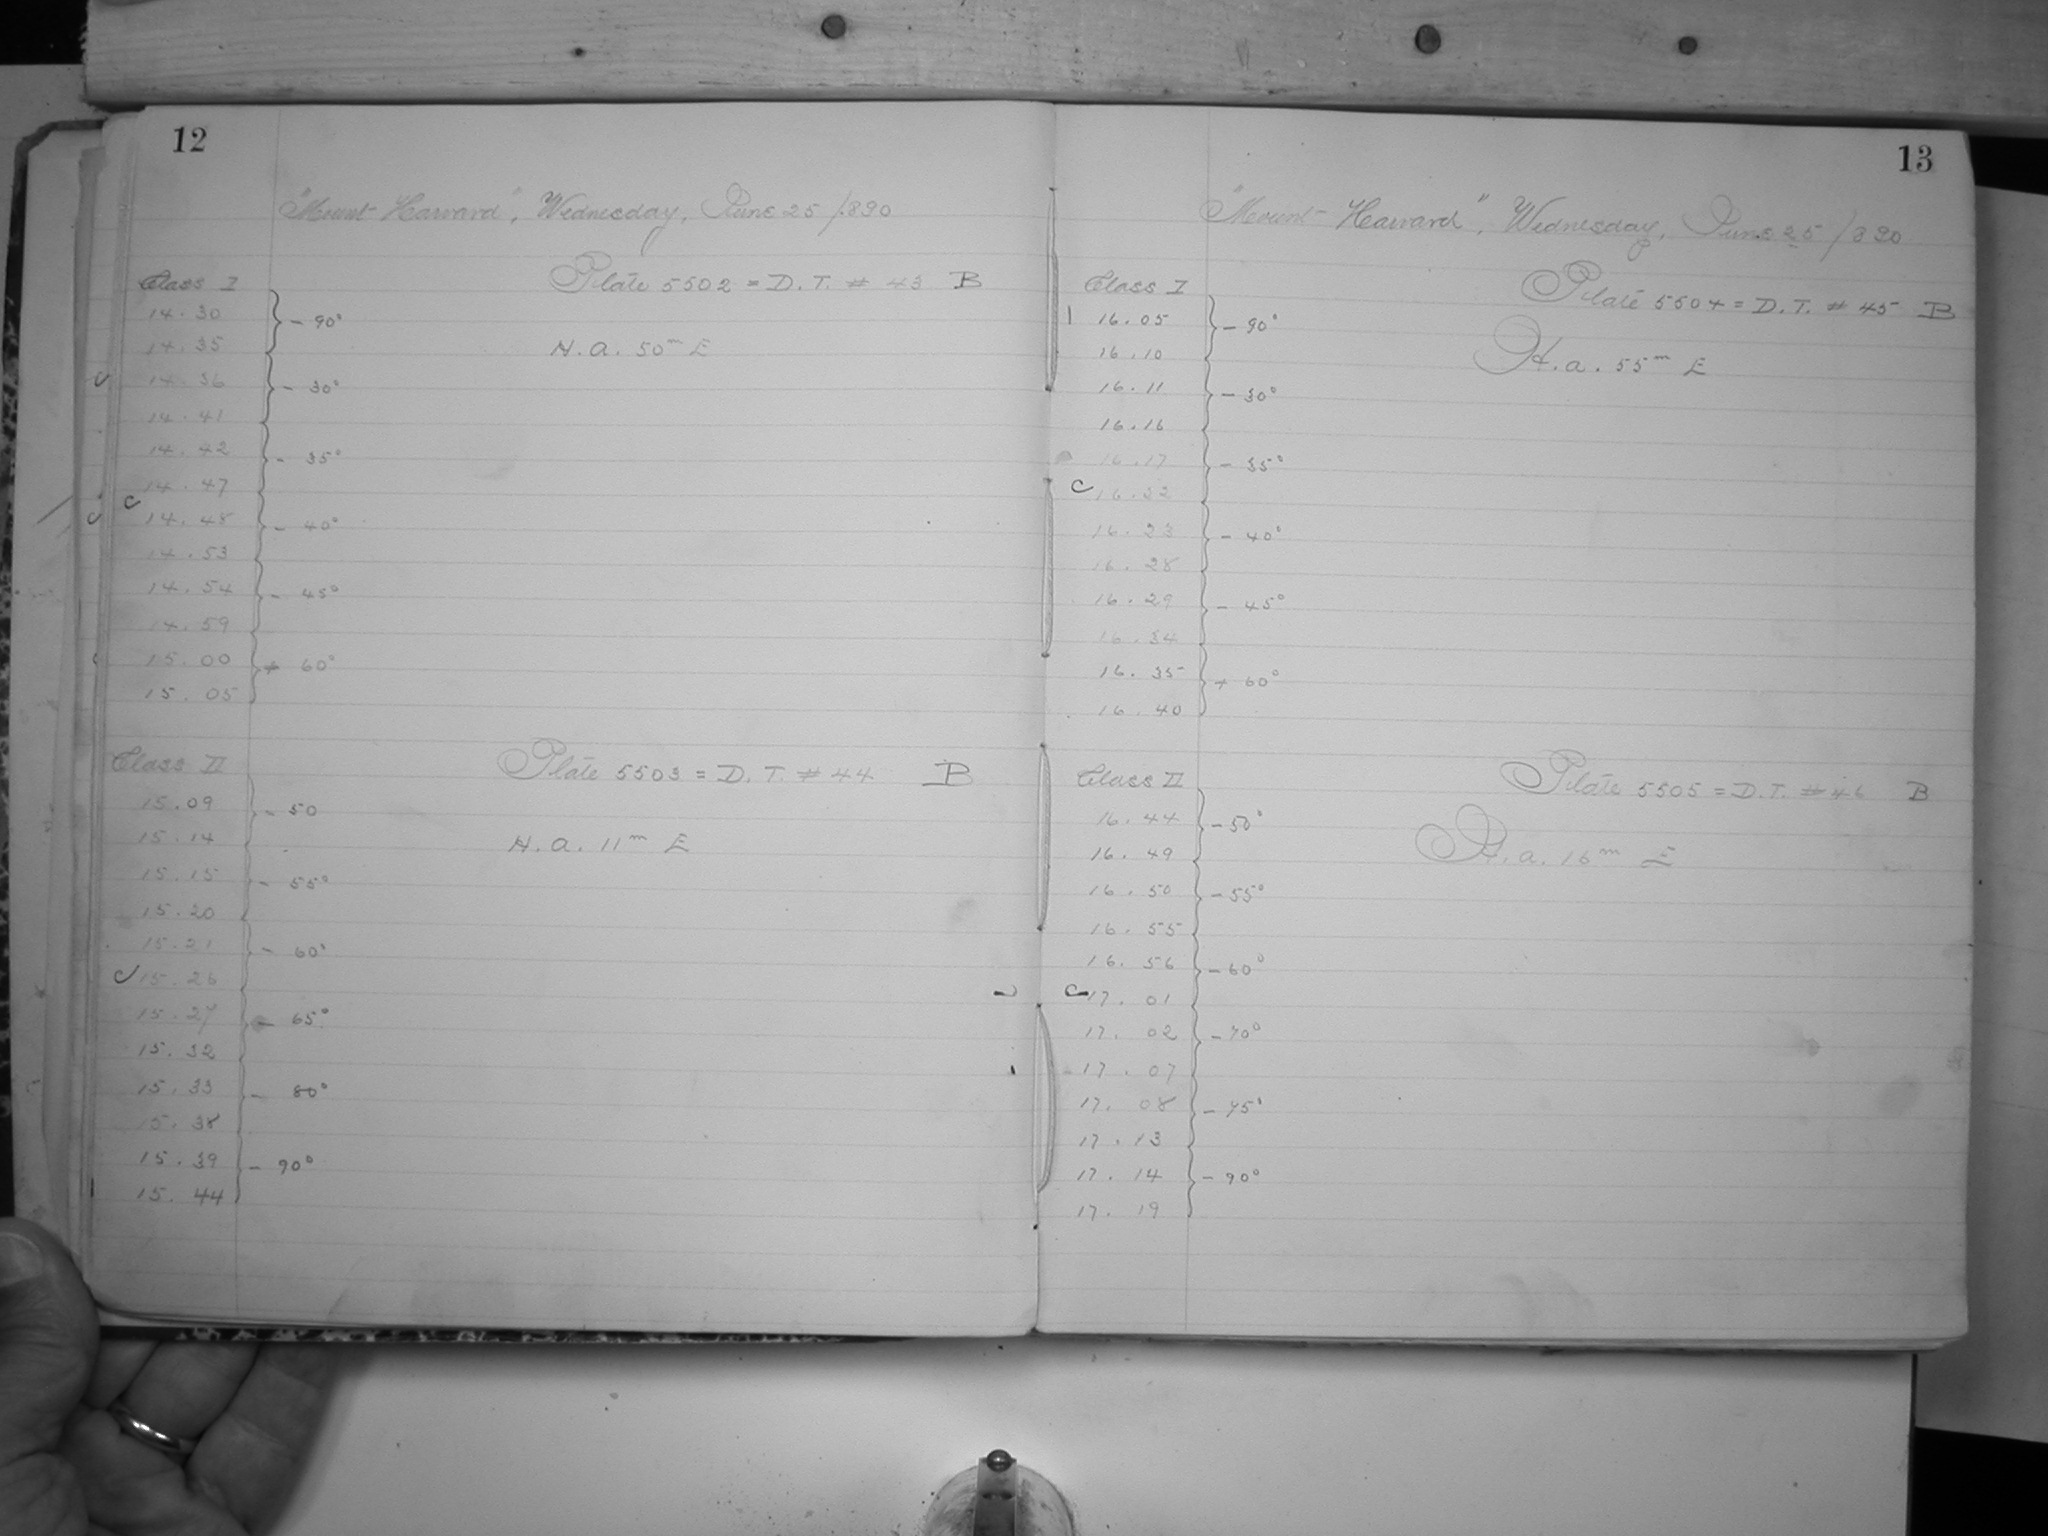 12
"Mount Harvard", Wednesday, June 25/890
Class I
Plate 5502 = D.T. # 43 B
14.30
- 90°
H.a. 50m E
14.35
14.36
- 30°
14.41
14.42
- 35°
14.47
14.48
- 40°
14.53
14.54
- 45°
14.59
15.00
+ 60°
15.05
Class II
Plate 5503 = D.T. # 44 B
15.09
- 50
15.14
H.a. 11m E
15.15
- 55°
15.20
15.21
- 60°
15.26
15.27
- 65°
15.32
15.33
- 80°
15.38
15.39
- 90°
15.44
13
"Mount Harvard", Wednesday, June 25/890
Class I
Plate 5504 = D.T. # 45 B
16.05
- 90°
16.10
H.a. 55m E
16.11
- 30°
16.16
16.17
- 35°
16.22
16.23
- 40°
16.28
16.29
- 45°
16.34
16.35
+ 60°
16.40
Class II
Plate 5505 = D.T. # 46 B
16.44
- 50°
16.49
H.a. 16m E
16.50
- 55°
16.55
16.56
- 60°
17.01
17.02
- 70°
17.07
17.08
- 75°
17.13
17.14
- 90°
17.19